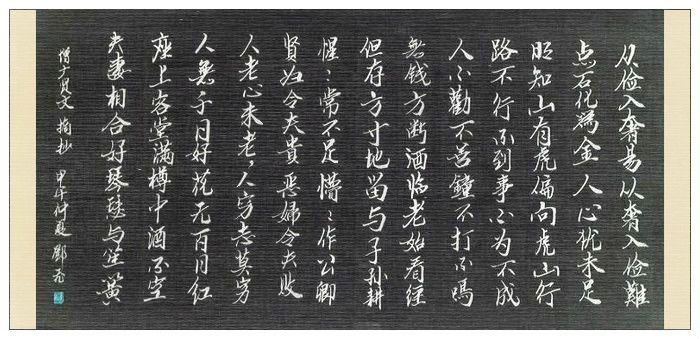 从俭入奢易从奢入俭難
点石化為金人心犹未足
明知山有虎偏向虎山行
路不行不到事不为不成
人不勸不善鐘不打不鳴
無钱方断酒临老始看經
但存方寸地留与子孙耕
惺〻常不足懵〻作公卿
賢妇令夫貴惡婦令夫敗
人老心未老，人穷志莫穷
人無千日好花无百日红
座上客堂满樽中酒不空
夫妻相合好琴瑟与笙簧
增广贤文摘抄 甲午仲夏 鄧